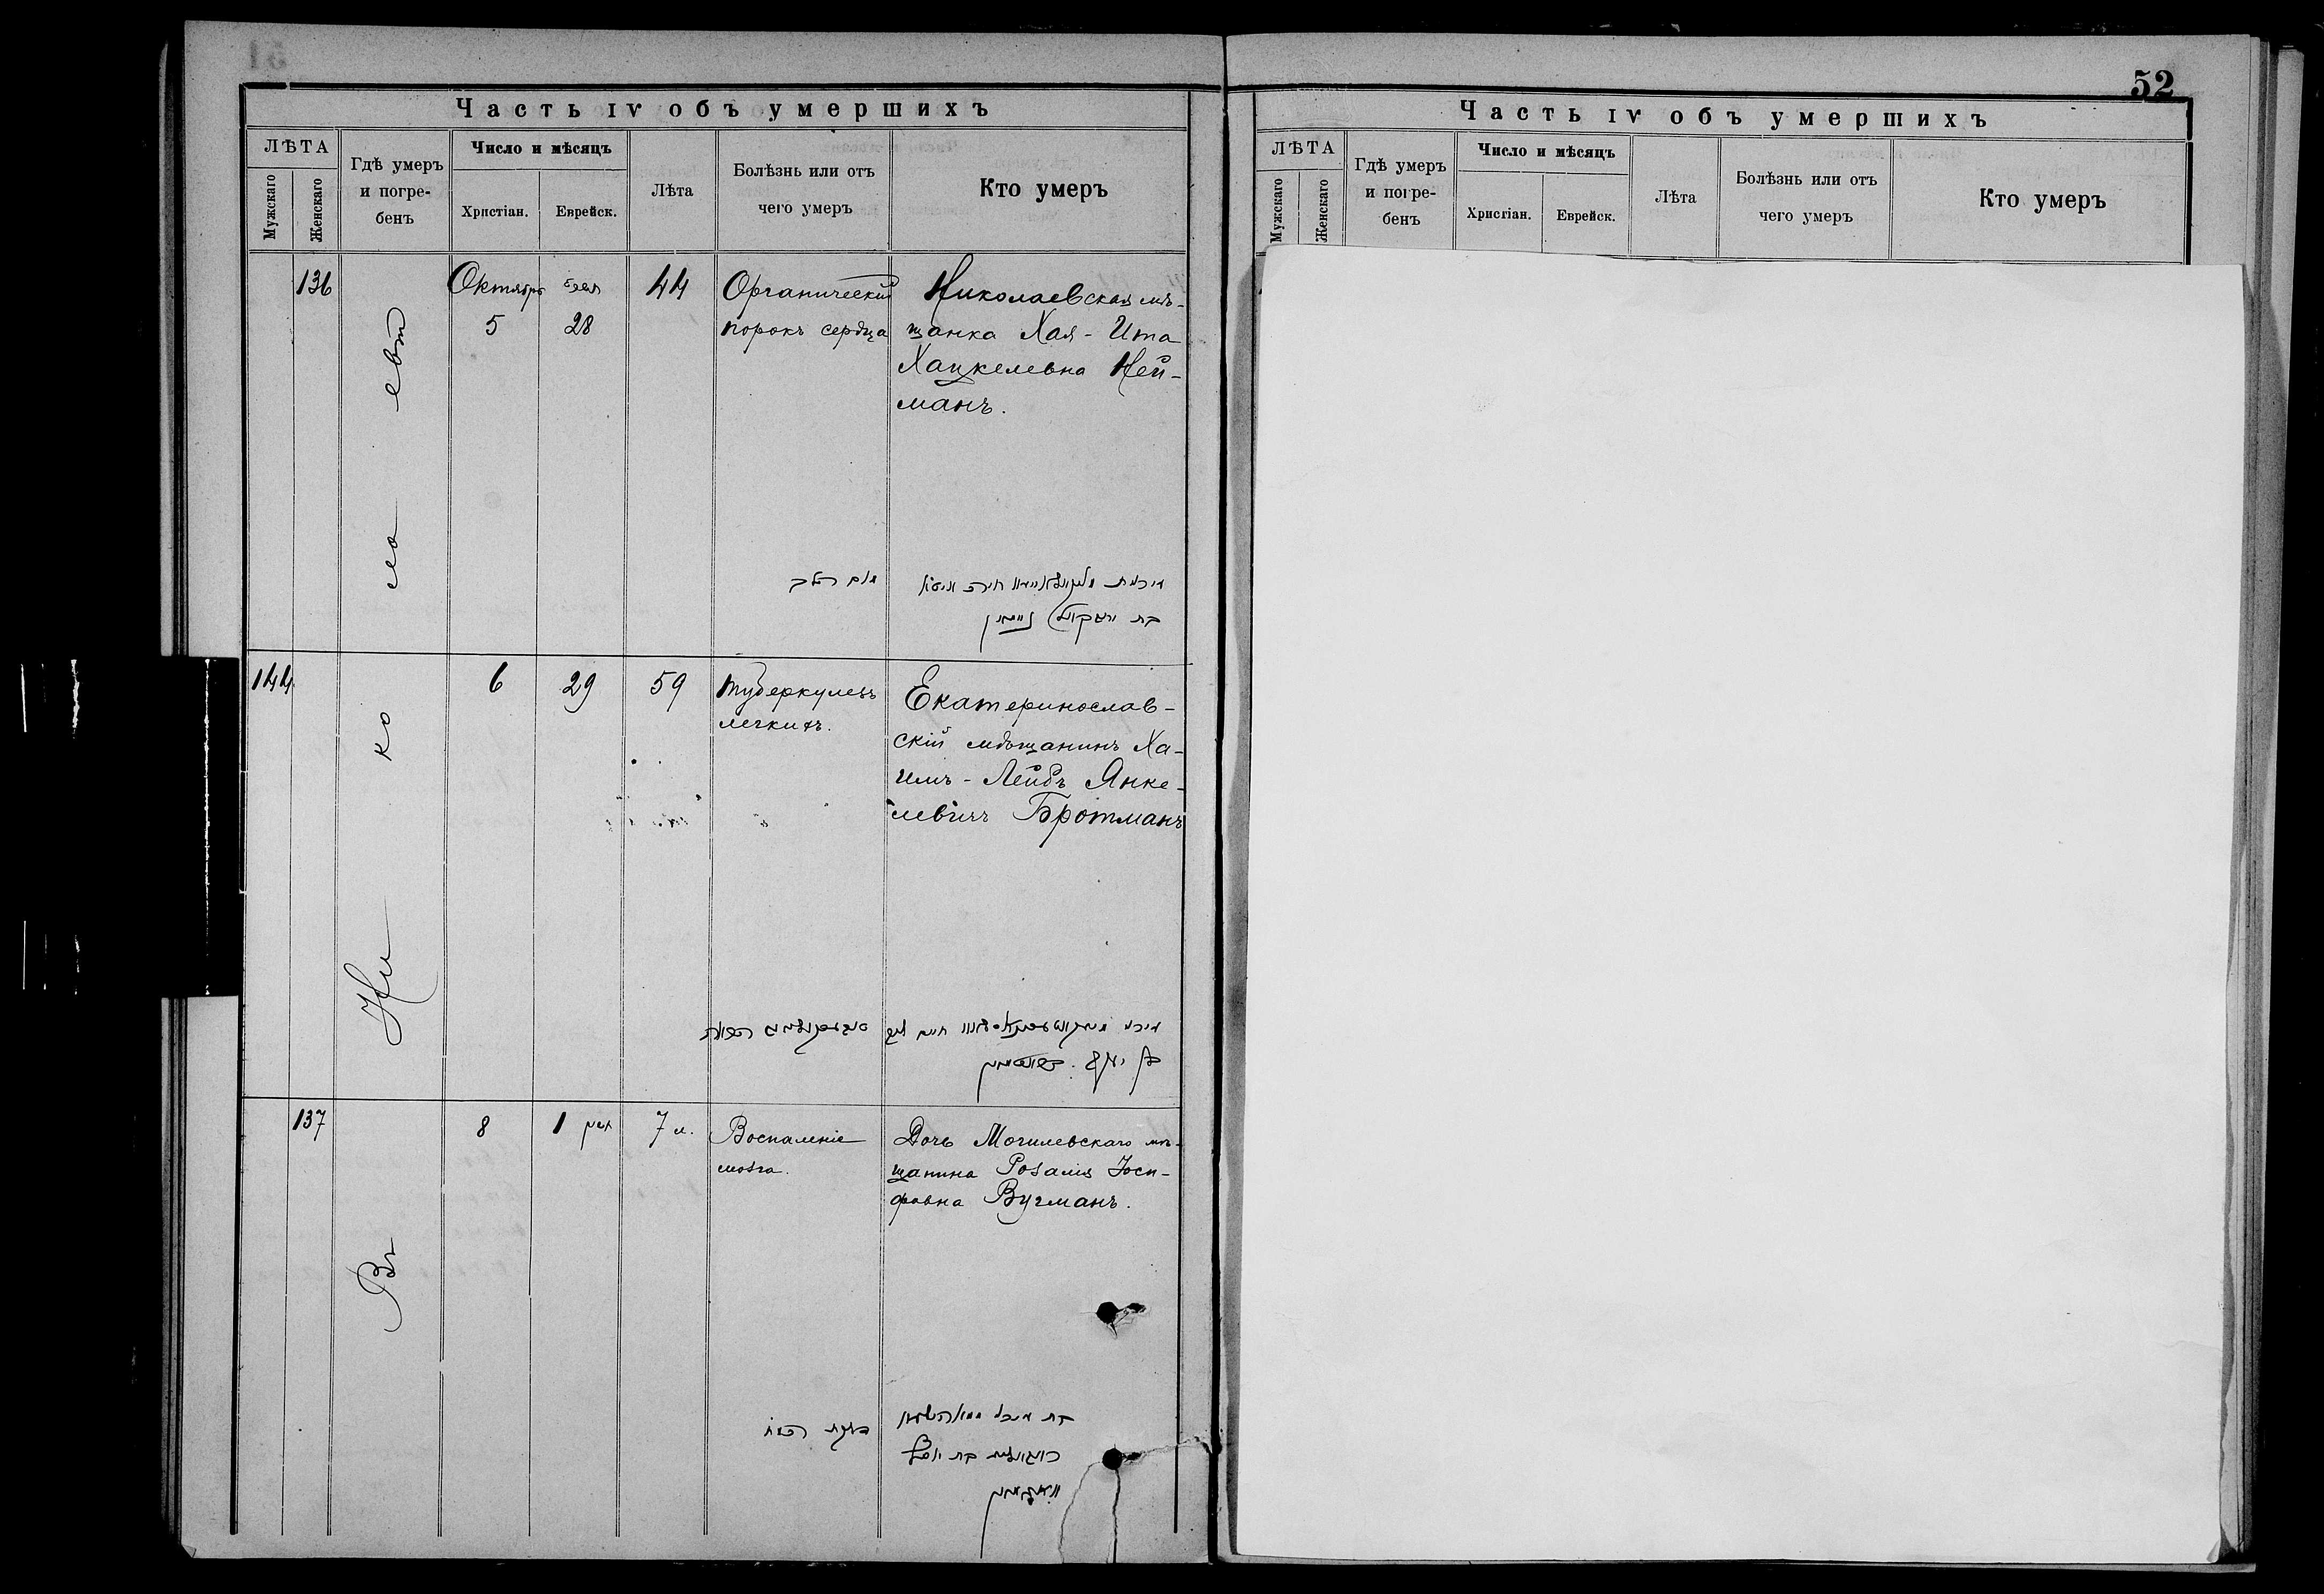 52
Часть IV объ умершихъ
ЛѢТА
Мужскаго
Женскаго
Гдѣ умеръ
и погре-
бенъ
Число и мѣсяцъ
Христіан.
Еврейск.
Лѣта
Болѣзнь или отъ
чего умеръ
Кто умеръ
Въ Николаевѣ
136
Октября
5
28
44
Органическій
порокъ сердца
Николаевская мѣ-
щанка Хая-Ита
Хацкелевна Ней-
манъ.
מום הלב
בת יחזקאל ניימאן
144
6
29
59
туберкулезъ
легкихъ.
Екатеринослав-
скій мѣщанинъ Ха-
имъ-Лейбъ Янке-
левичъ Бротманъ
137
8
1
7 м.
Воспаленіе
мозга.
Дочь Могилевскаго мѣ-
щанина Розалія Іоси-
фовна Вугманъ.
דלקת המוח
Часть IV объ умершихъ
ЛѢТА
Мужскаго
Женскаго
Гдѣ умеръ
и погре-
бенъ
Число и мѣсяцъ
Христіан.
Еврейск.
Лѣта
Болѣзнь или отъ
чего умеръ
Кто умеръ